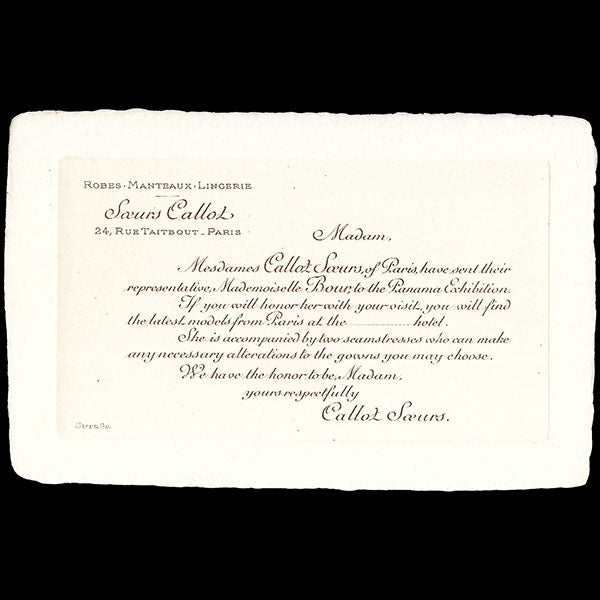 ROBES · MANTEAUX · LINGERIE
Sœurs Callot
24, RUE TAITBOUT _ PARIS
Madam,
Mesdames Callot Sœurs, of Paris, have sent their
representative, Mademoiselle Bour, to the Panama Exhibition.
If you will honor her with your visit, you will find
the latest models from Paris at the ________ hotel.
She is accompanied by two seamstresses who can make
any necessary alterations to the gowns you may choose.
We have the honor to be, Madam,
yours respectfully
Callot Sœurs.
Stern Gr.